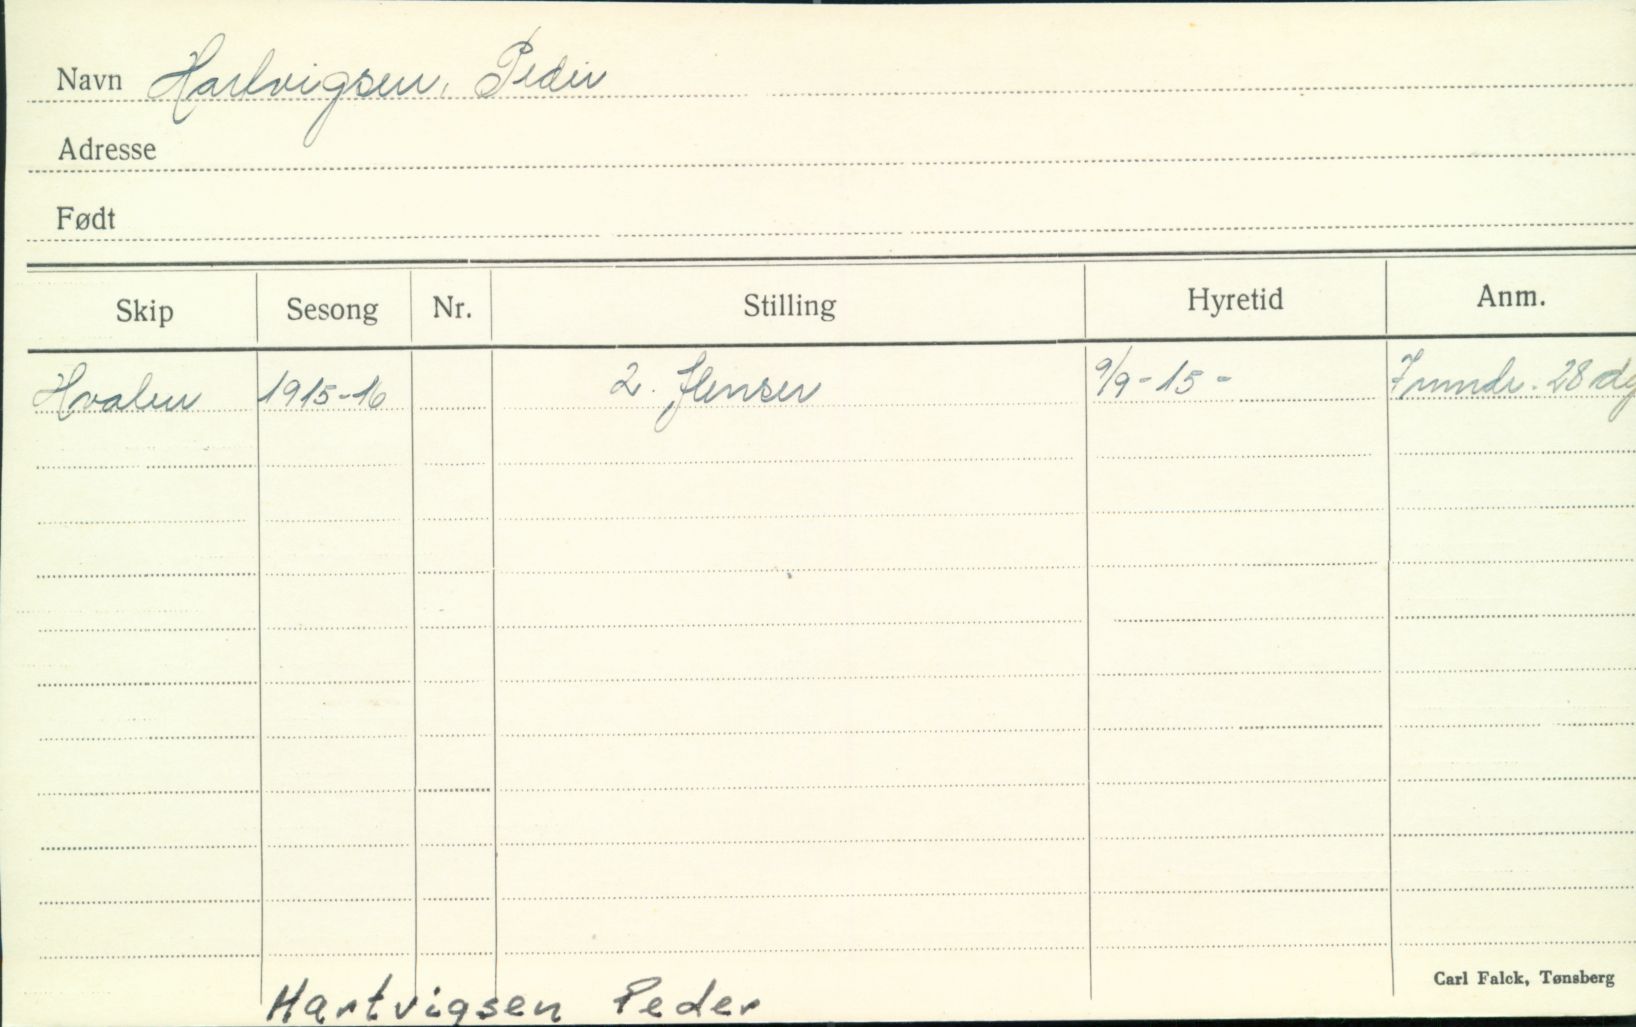 Navn Hartvigsen, Peder
Adresse
Født
Skip Sesong Nr. Stilling Hyretid Anm.
Hvalen 1915-16 2. flenser 9/9-15- 7 mndr. 28 dg
Carl Falck, Tønsberg
Hartvigsen Peder